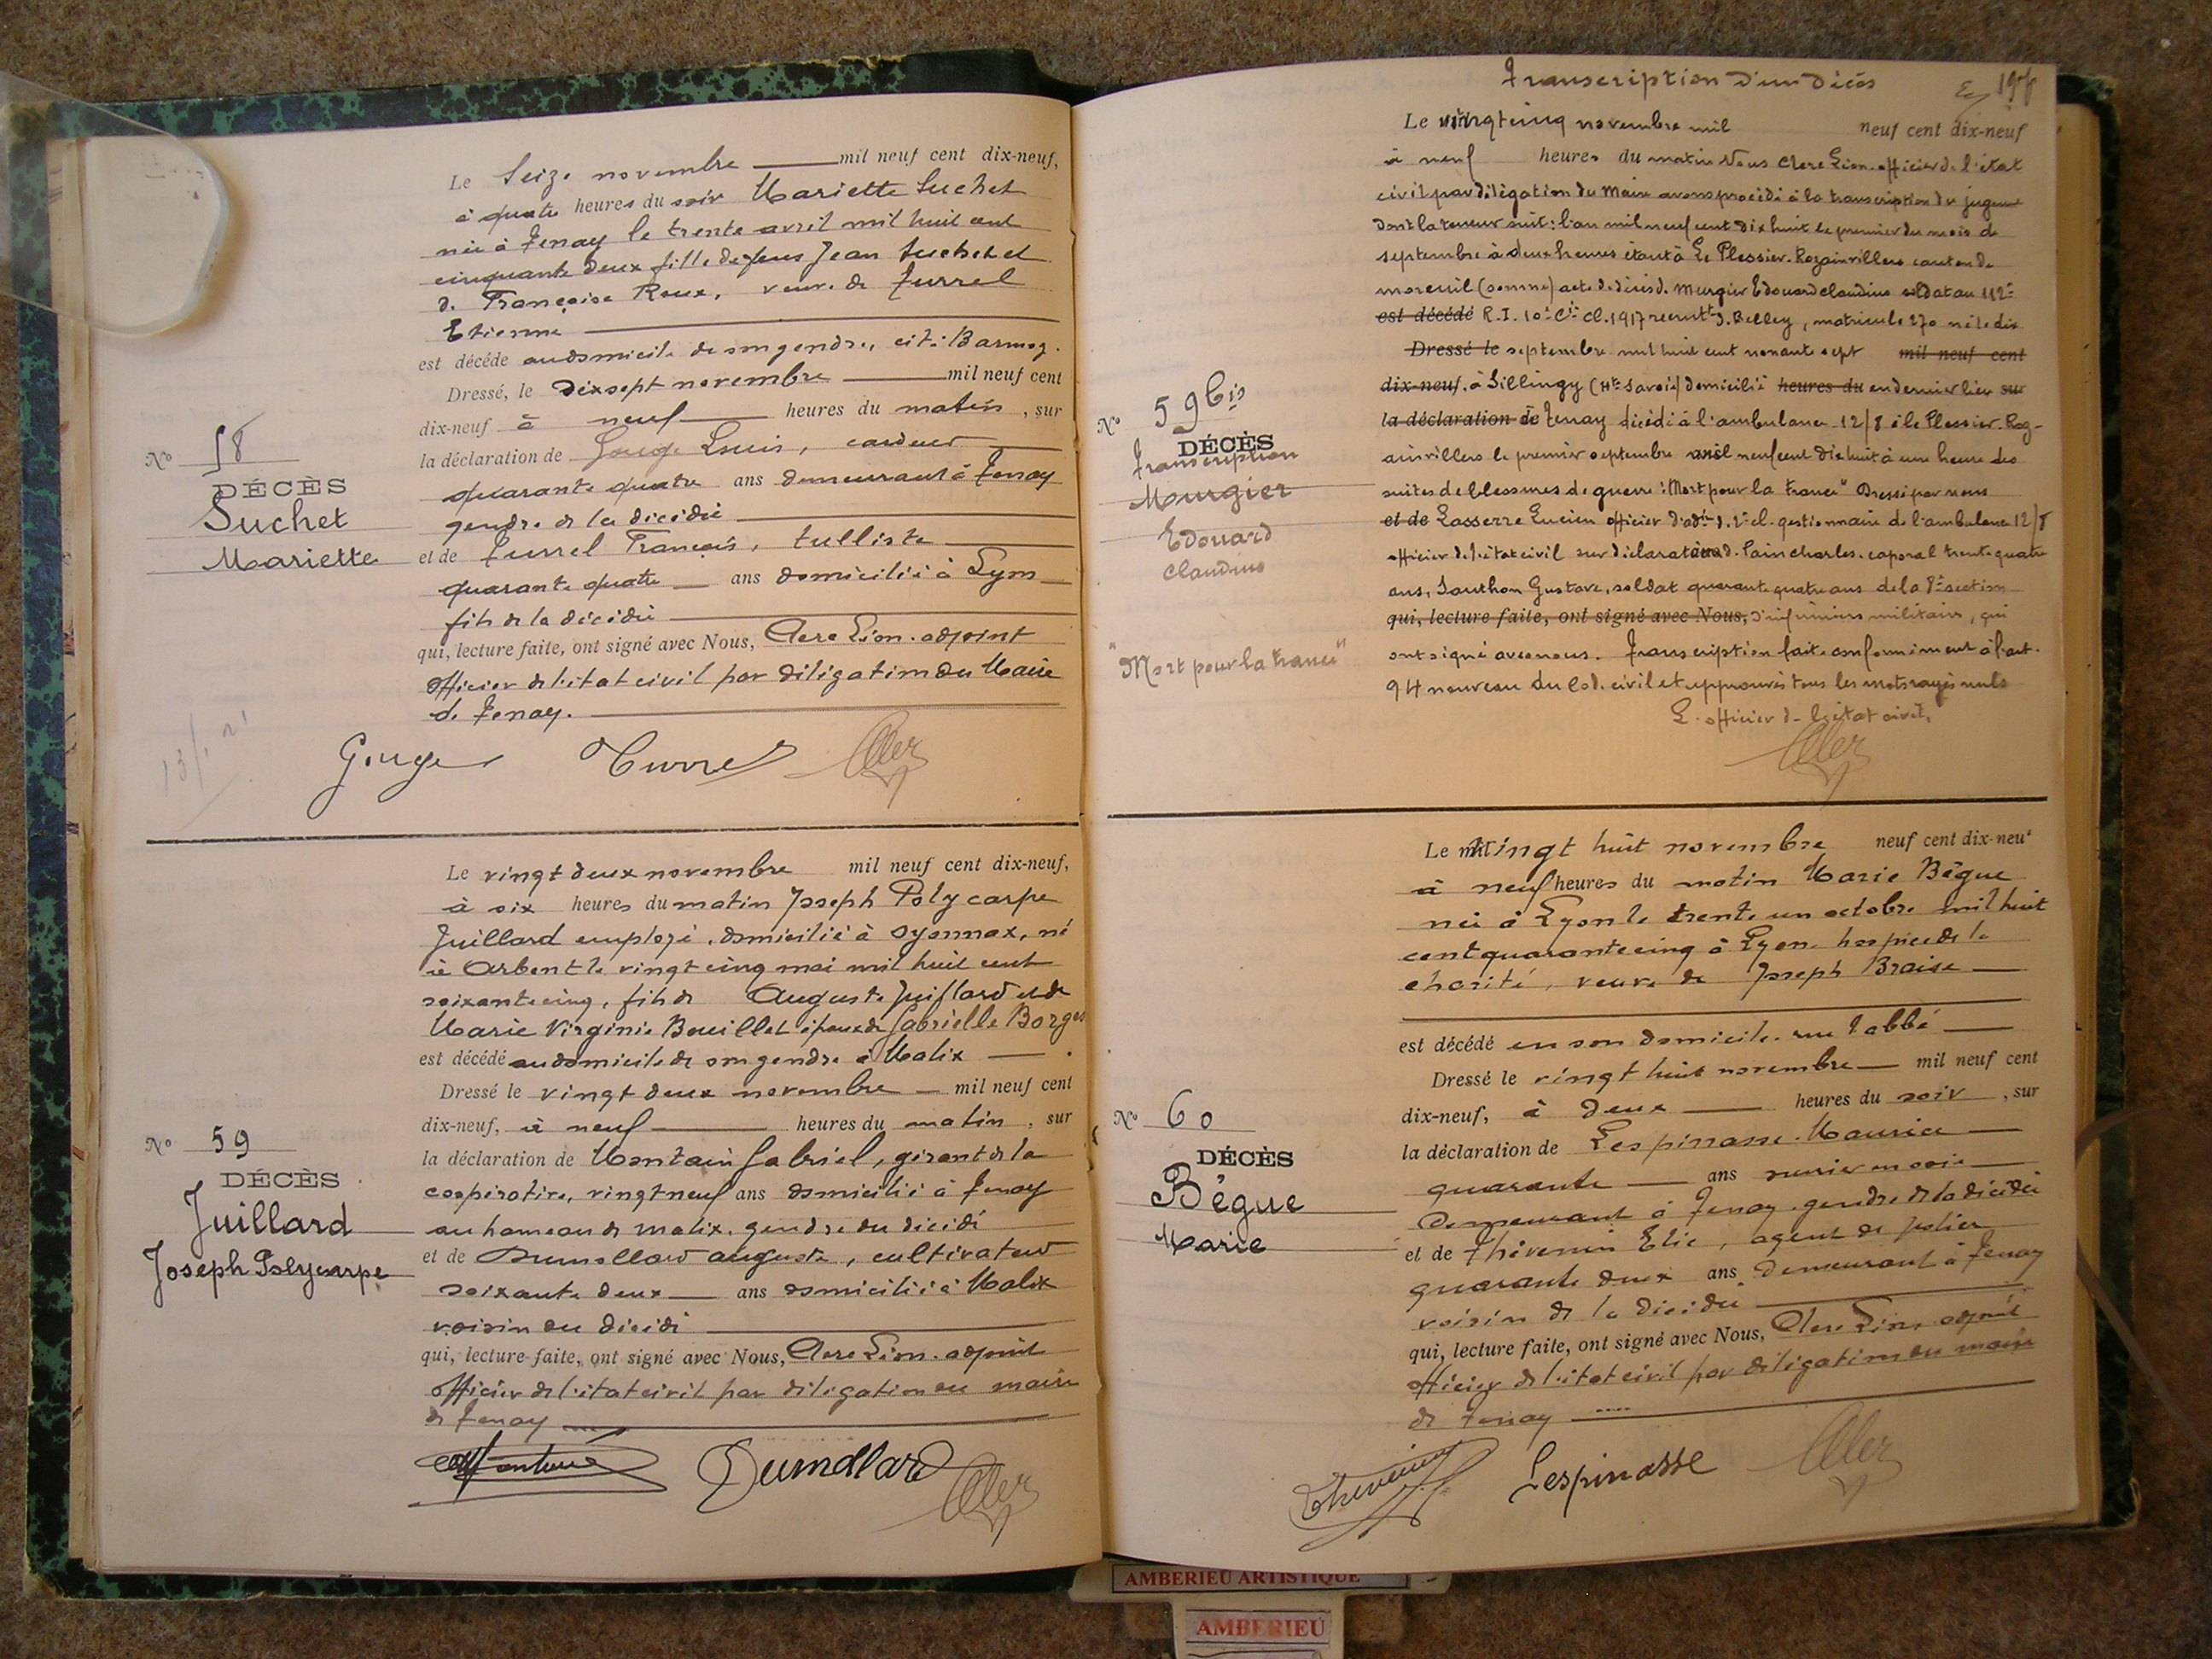 Le Seize novembre mil neuf cent dix-neuf,
à quatre heures du soir Mariette Suchet
née à Tenay le trente avril mil huit cent
cinquante deux fille de feus Jean Suchet et
de Françoise Roux, veuve de Turrel
Etienne
est décédé au domicile de son gendre, cité Barmog.
Dressé, le Dix sept novembre mil neuf cent
dix-neuf à neuf heures du matin, sur
la déclaration de Gouge Louis, cardeur
quarante quatre ans demeurant à Tenay
gendre de la décédée
et de Turrel François, tulliste
quarante quatre ans domicilié à Lyon
fils de la décédée
qui, lecture faite, ont signé avec Nous, Clerc Léon. adjoint
officier de l'état civil par délégation du Maire
de Tenay.
Gouge Turrel Clerc
N° 58
DÉCÈS
Suchet
Mariette
Le vingt deux novembre mil neuf cent dix-neuf,
à six heures du matin Joseph Polycarpe
Juillard employé, domicilié à Oyonnax, né
à Arbent le vingt cinq mai mil huit cent
soixante cinq, fils de Auguste Juillard et de
Marie Virginie Bouillet époux de Gabrielle Borges
est décédé au domicile de son gendre à Malix
Dressé le vingt deux novembre mil neuf cent
dix-neuf, à neuf heures du matin, sur
la déclaration de Montain Gabriel, gérant de la
coopérative, vingt neuf ans domicilié à Tenay
au hameau de Malix, gendre du décédé
et de Dumollard Auguste, cultivateur
soixante deux ans domicilié à Malix
voisin du décédé
qui, lecture faite, ont signé avec Nous, Clerc Léon. adjoint
officier de l'état civil par délégation du maire
de Tenay
Montain Dumollard Clerc
N° 59
DÉCÈS
Juillard
Joseph Polycarpe
Transcription d'un Décès
Le vingt cinq novembre mil neuf cent dix-neuf
à neuf heures du matin Nous Clerc Léon. officier de l'état
civil par délégation du Maire avons procédé à la transcription du jugement
dont la teneur suit: l'an mil neuf cent dix huit le premier du mois de
septembre à deux heures étant à Le Plessier-Rozainvillers canton de
moreuil (somme) acte de décès de Murgier Edouard claudius soldat au 112e
est décédé R.I. 10e Cie cl. 1917 recrutt d. Belley, matricule 270 né le dix
Dressé le septembre mil huit cent nonante sept mil neuf cent
dix-neuf. à Sillingy (Hte Savoie) domicilié heures du en dernier lieu sur
la déclaration de Tenay décédé à l'ambulance 12/8 à le Plessier-Roz-
ainvillers le premier septembre mil neuf cent dix huit à une heure des
suites de blessures de guerre "Mort pour la France" Dressé par nous
et de Lasserre Lucien officier d'adon d. 2e cl. gestionnaire de l'ambulance 12/8
officier de l'état civil sur déclaration d. Pain charles. caporal trente quatre
ans, Southon Gustave, soldat quarante quatre ans de la 8e section
qui, lecture faite, ont signé avec Nous, d'infirmiers militaires, qui
ont signé avec nous. Transcription faite conformément à l'art.
94 nouveau du Code civil et approuvés tous les mots rayés nuls
L'officier de l'état civil,
Clerc
N° 59 bis
DÉCÈS
Transcription
Mourgier
Edouard
Claudius
"Mort pour la France"
Le vingt huit novembre neuf cent dix-neuf
à neuf heures du matin Marie Bègue
née à Lyon le trente un octobre mil huit
cent quarante cinq à Lyon. hospice de la
charité, veuve de Joseph Braise
est décédé en son domicile. rue Labbé
Dressé le vingt huit novembre mil neuf cent
dix-neuf, à deux heures du soir, sur
la déclaration de Lespinasse Maurice
quarante ans ouvrier en soie
demeurant à Tenay gendre de la décédée
et de Thévenin Elie, agent de police
quarante deux ans demeurant à Tenay
voisin de la décédée
qui, lecture faite, ont signé avec Nous, Clerc Léon, adjoint
officier de l'état civil par délégation du maire
de Tenay
Thévenin Lespinasse Clerc
N° 60
DÉCÈS
Bègue
Marie
AMBERIEU ARTISTIQUE
AMBERIEU